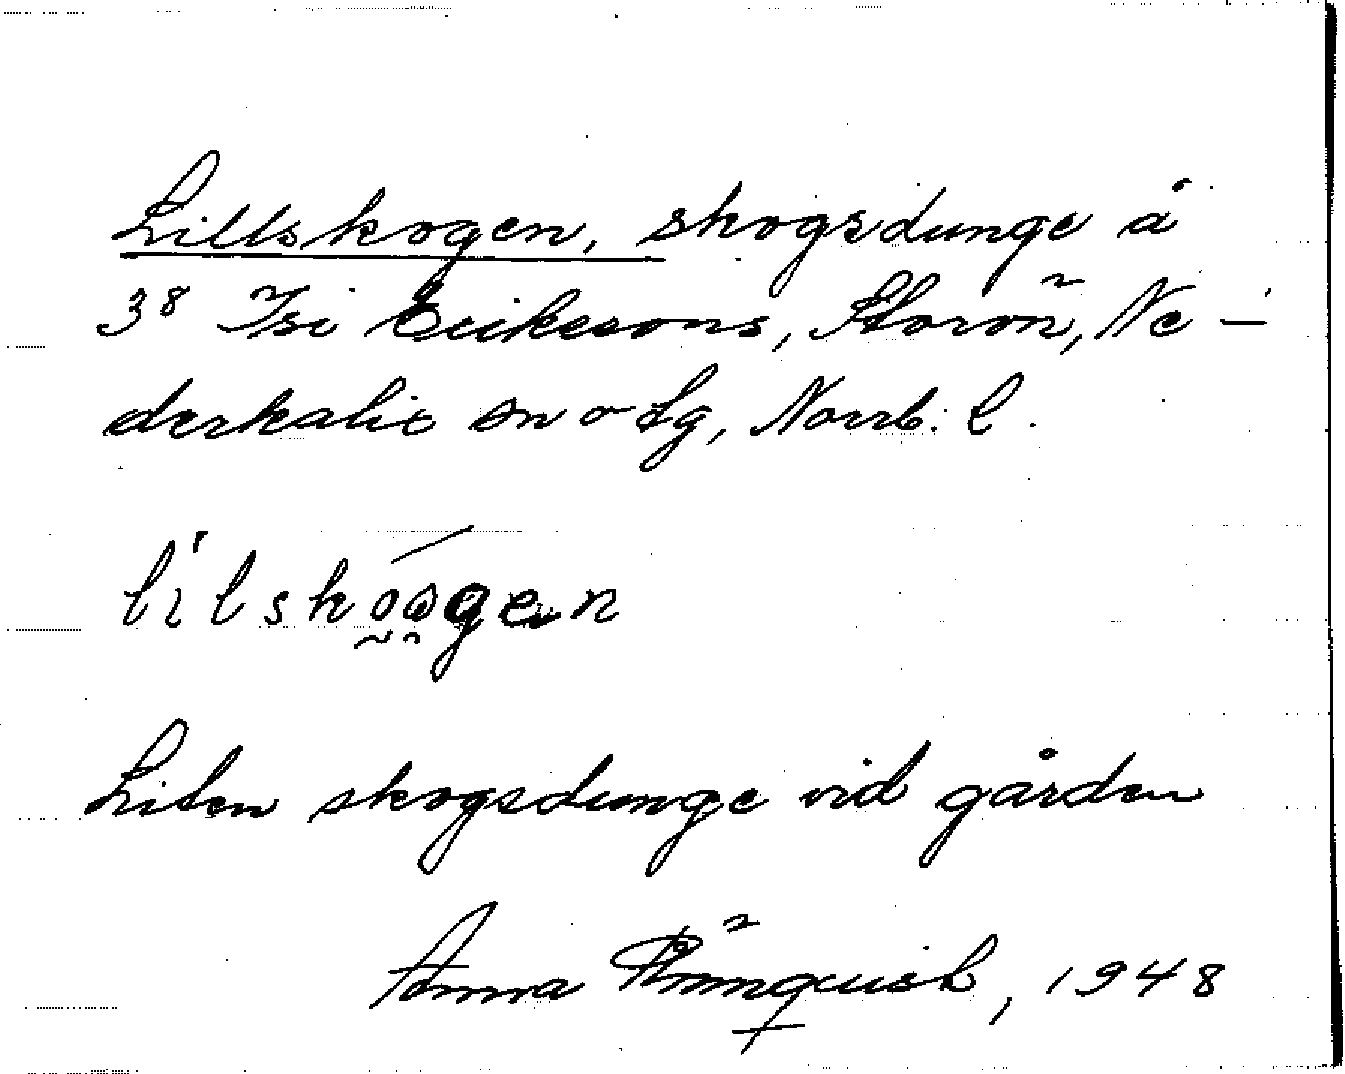 Lillskogen, skogsdunge å
3⁸ Isi Erikssons, Storön, Ne-
derkalix sn o lg, Norrb. l.
lilskoogen
Liten skogsdunge vid gården
Anna Rönquist, 1948